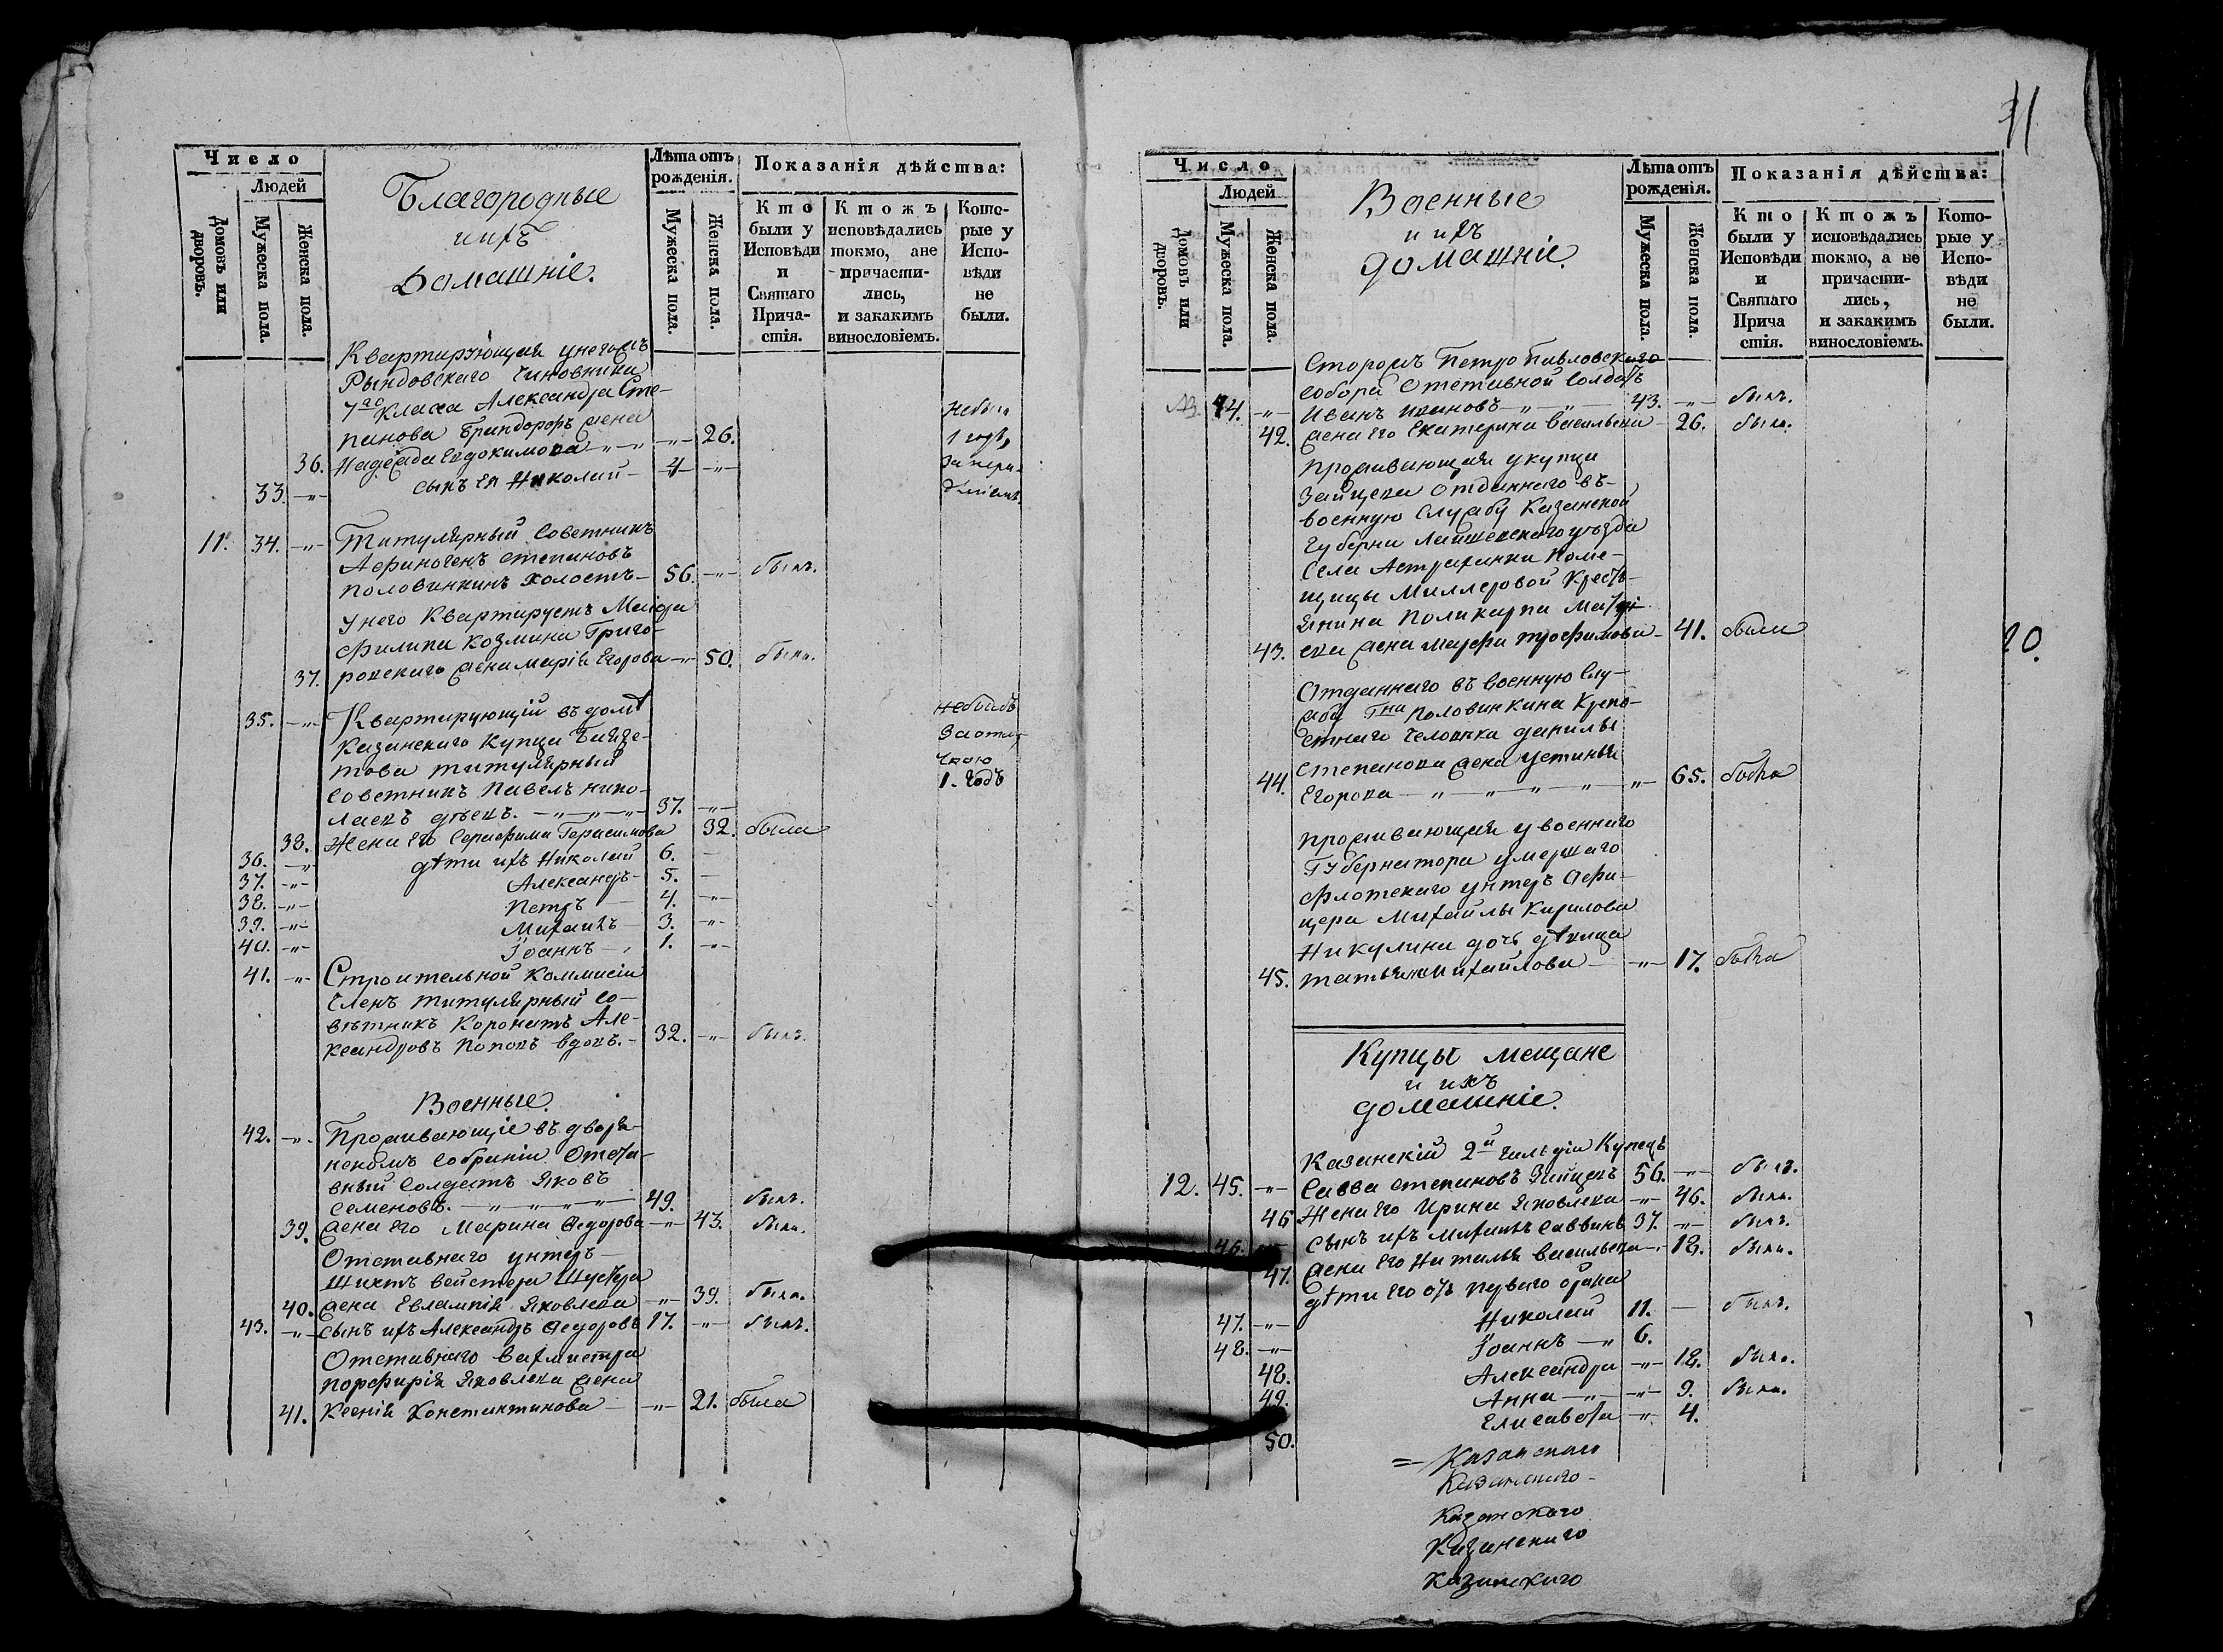 Число
Людей
Домовъ или дворовъ.
Мужеска пола.
Женска пола.
Благородные
ихъ
Домашніе.
Лѣта отъ рожденія.
Мужеска пола.
Женска пола.
Показанія дѣйства:
Кто были у Исповѣди и Святаго Причастія.
Ктожъ исповѣдались токмо, ане причастились, и закакимъ винословіемъ.
Которые у Исповѣди не были.
Квартирующая
Рындовскаго Чиновника
7го класса Александра Сте-
панова жена — 26. небыла
36. Надежда Евдокимова — 1 годъ
33. сынъ ея Николай — 4
11. 34. Титулярный Советникъ
Афиногенъ Степановъ
Половинкинъ холостъ — 56. былъ.
У него Квартируетъ Маіора
Филипа Козмина Григо-
37. жена Марія Егорова — 50. была.
35. Квартирующій въ домѣ небылъ
Казанскаго Купца
това титулярный
Советникъ Павелъ Нико- 1. годъ
37.
38. Жена Его Серафима Герасимова 32. была
36. дѣти ихъ Николай 6.
37. Александръ 5.
38. Петръ 4.
39. Михаилъ 3.
40. Іоаннъ 1.
41. Строительной Коммисіи
Членъ титулярный Со-
вѣтникъ Коронатъ Але-
ксандровъ Поповъ вдовъ. — 32. былъ.
Военные.
42. Проживающіе въ дворян-
скомъ Собраніи Отста-
вный Солдатъ Яковъ
Семеновъ. 49. былъ.
39. жена Его Марина Федорова 43. была.
Отставнаго унтеръ
40. жена Евлампія Яковлева 39. была.
43. сынъ ихъ Александръ Федоровъ 17. былъ.
Отставнаго вахмистра
Порфирія Яковлева жена
41. Ксенія Константинова 21. была
11
Число
Людей
Домовъ или дворовъ.
Мужеска пола.
Женска пола.
Военные
и ихъ
домашніе.
Лѣта отъ рожденія.
Мужеска пола.
Женска пола.
Показанія дѣйства:
Кто были у Исповѣди и Святаго Причастія.
Ктожъ исповѣдались токмо, а не причастились, и закакимъ винословіемъ.
Которые у Исповѣди не были.
Сторожъ Петро Павловскаго
Собора Отставной Солдатъ
44. Иванъ Ивановъ 43. былъ.
42. жена Его Екатерина Васильева 26. была.
Проживающая у купца
Зайцева Отданнаго въ
военную Службу Казанской
Губерни Лаишевскаго уѣзда
Села Астраханки Поме-
щицы Миллеровой Кресть-
янина Поликарпа Матвѣ-
43. ева жена Марфа Трофимова 41. была
20.
Отданнаго въ военную Слу-
жбу Гна Половинкина Крепо-
стнаго Человѣка Данилы
Степанова жена Устинья
44. Егорова 65. была
Проживающая у военнаго
Губернатора умершаго
Флотскаго унтеръ Офи-
цера Михайлы Кирилова
Никулина дочь дѣвица
45. Татьяна Михайлова 17. была
Купцы мещане
и ихъ
домашніе.
Казанскій 2й Гильдіи Купецъ
12. 45. Савва Степановъ Зайцевъ 56. былъ.
46 Жена Его Ирина Яковлева 46. была.
46. Сынъ ихъ Михаилъ Саввинъ 37. былъ.
47. жена Его Наталья Васильева 18. была.
дѣти Его отъ перваго брака
47. Николай 11. былъ.
48. Іоаннъ 6.
48. Александра 12. была.
49. Анна 9. была.
50. Елисавета 4.
= Казанскаго
Казанскаго
Казанскаго
Казанскаго
Казанскаго